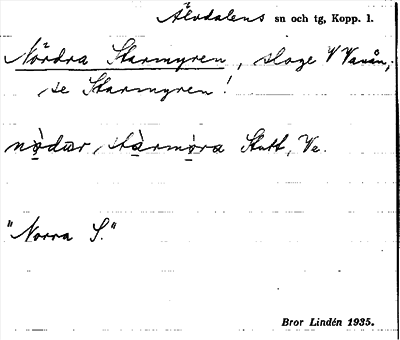 Älvdalens sn och tg, Kopp. l.
Nördra Starmyren, sloge V Vanån;
se Starmyren!
nø̀där, stàrmøra Statt, Ve.
"Norra S."
Bror Lindén 1935.